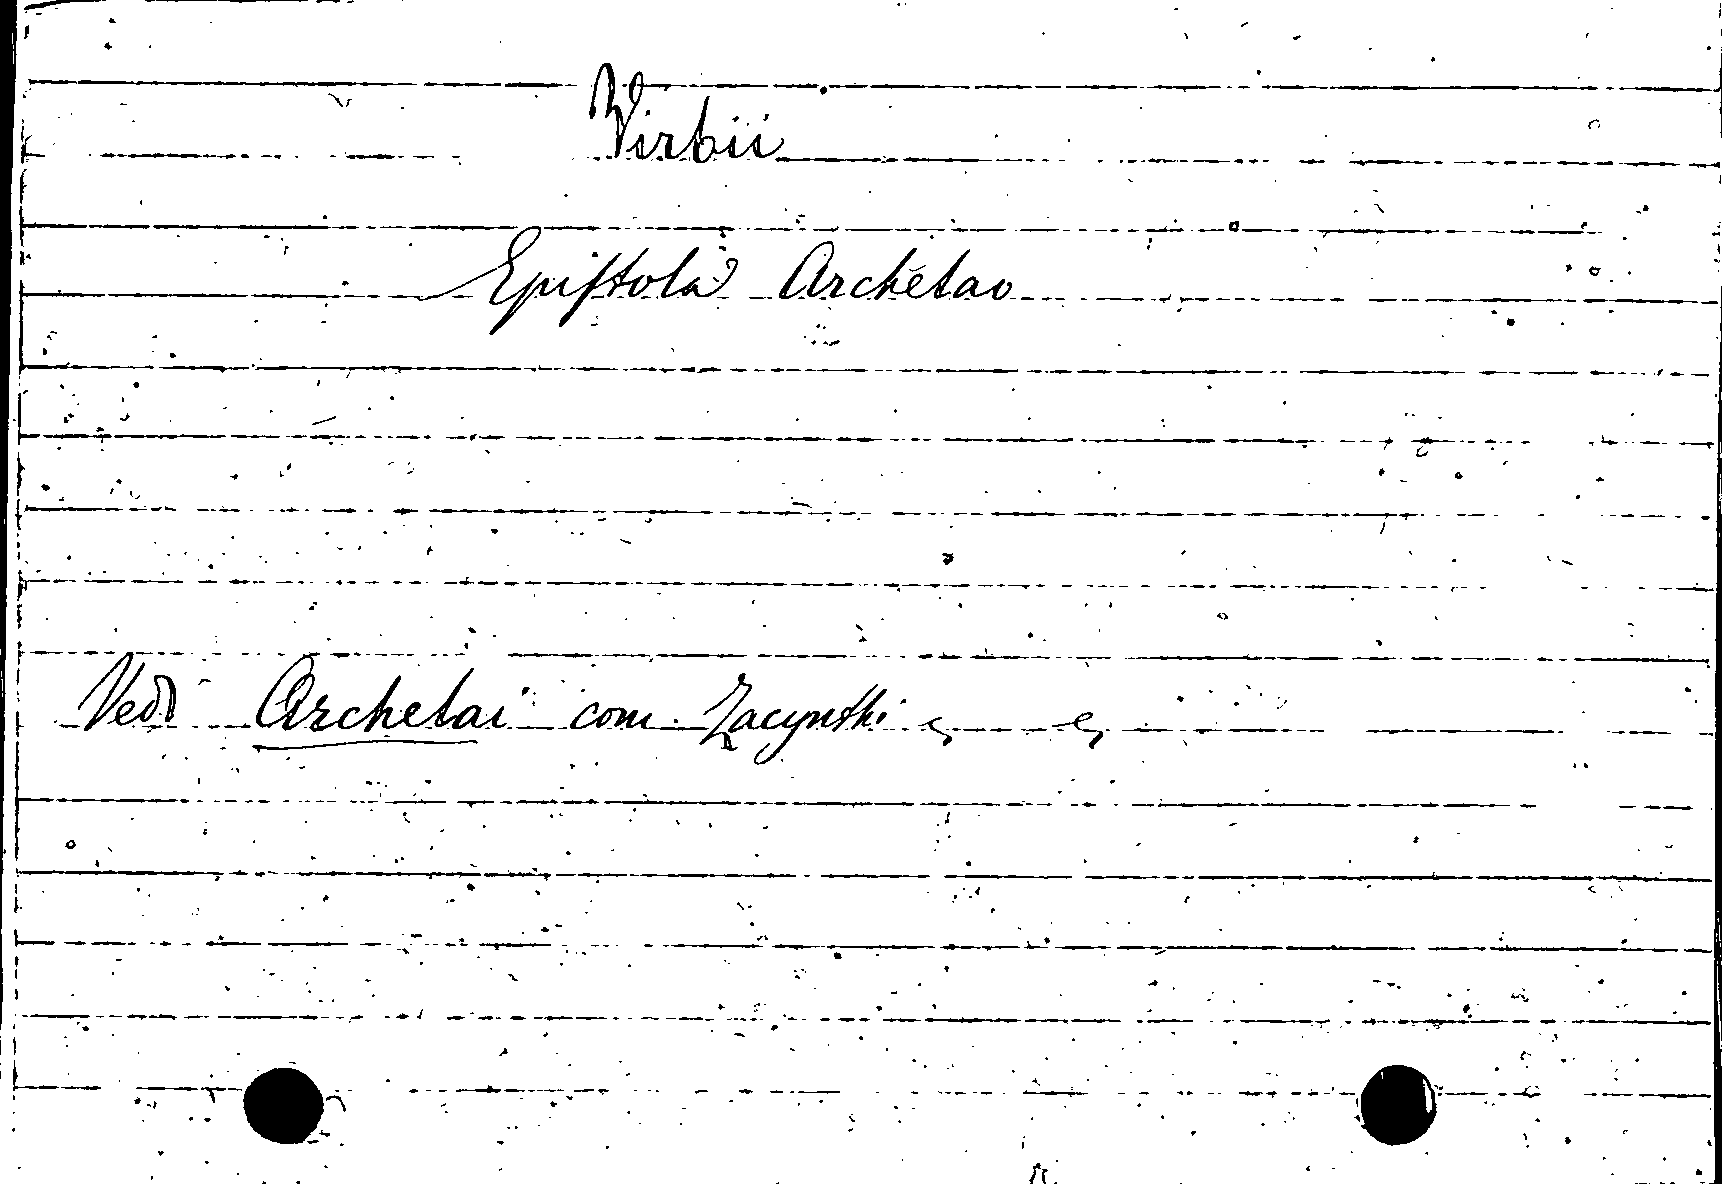 Virbii
Epistola Archelao
Vedi Archelai com. Zacynthi